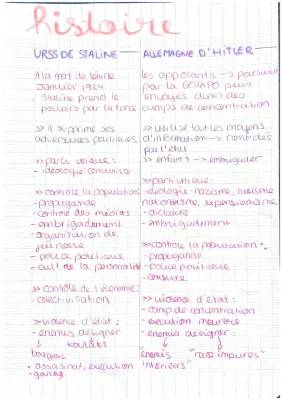 histoire
URSS DE STALINE
A la mort de Lénine
Janvier 1924
Staline prend le
pouvoirs par la force
>> il supprime ses
adversaires politiques
>> parti unique :
- idéologie : comunisme
>> contrôle la population
- propagande
- controle des médias
- embrigadement
- organisation de
jeunesse
- police politique
- cult de la personalité
>> contrôle de l'économie :
- colectivisation
>> violence d'état :
- enemis désigner
koulaks
bourgeois
- assasinat, execution
- goulag
ALLEMAGNE D'HITLER
les opposants -> poursuivi
par la GESTAPO puis
envoyés dans des
camps de concentration
>> utilise tout les moyens
d'information -> contrôlés
par l'état
>> enfants -> embrigader
>> parti unique :
- idéologie : nazisme, racisme
nationalisme, expensionisme
- dictature
- embrigadement
>> contrôle la population :
- propagande
- police politique
- censure
>> violence d'état :
- camp de concentration
- execution meurtrie
- enemis désigner :
"enemis "race impures"
intérieurs"